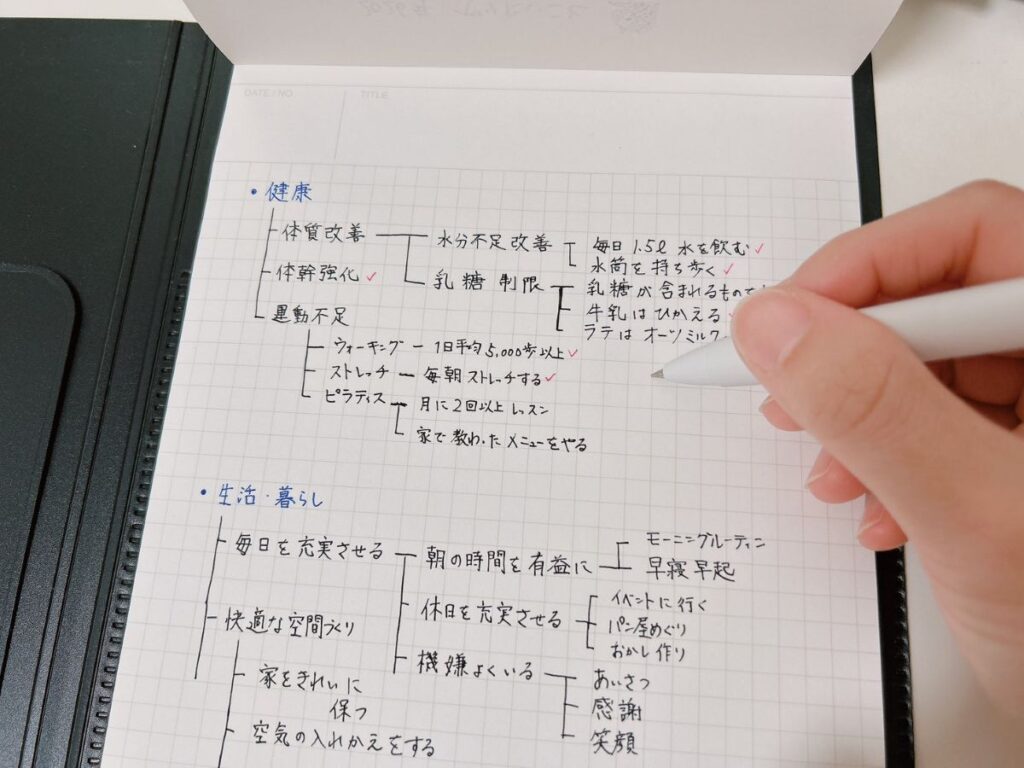 DATE / NO.
TITLE
・健康
体質改善 水分不足改善 毎日 1.5ℓ 水を飲む✓
水筒を持ち歩く✓
体幹強化✓ 乳糖制限 乳糖が含まれるもの
牛乳はひかえる
運動不足 ラテはオーツミルク
ウォーキング ー 1日平均 5,000歩以上✓
ストレッチ ー 毎朝ストレッチする✓
ピラティス 月に2回以上レッスン
家で教わったメニューをやる
・生活・暮らし
毎日を充実させる 朝の時間を有益に モーニングルーティン
早寝早起
快適な空間づくり 休日を充実させる イベントに行く
パン屋めぐり
おかし作り
家をきれいに 機嫌よくいる あいさつ
保つ 感謝
空気の入れかえをする 笑顔